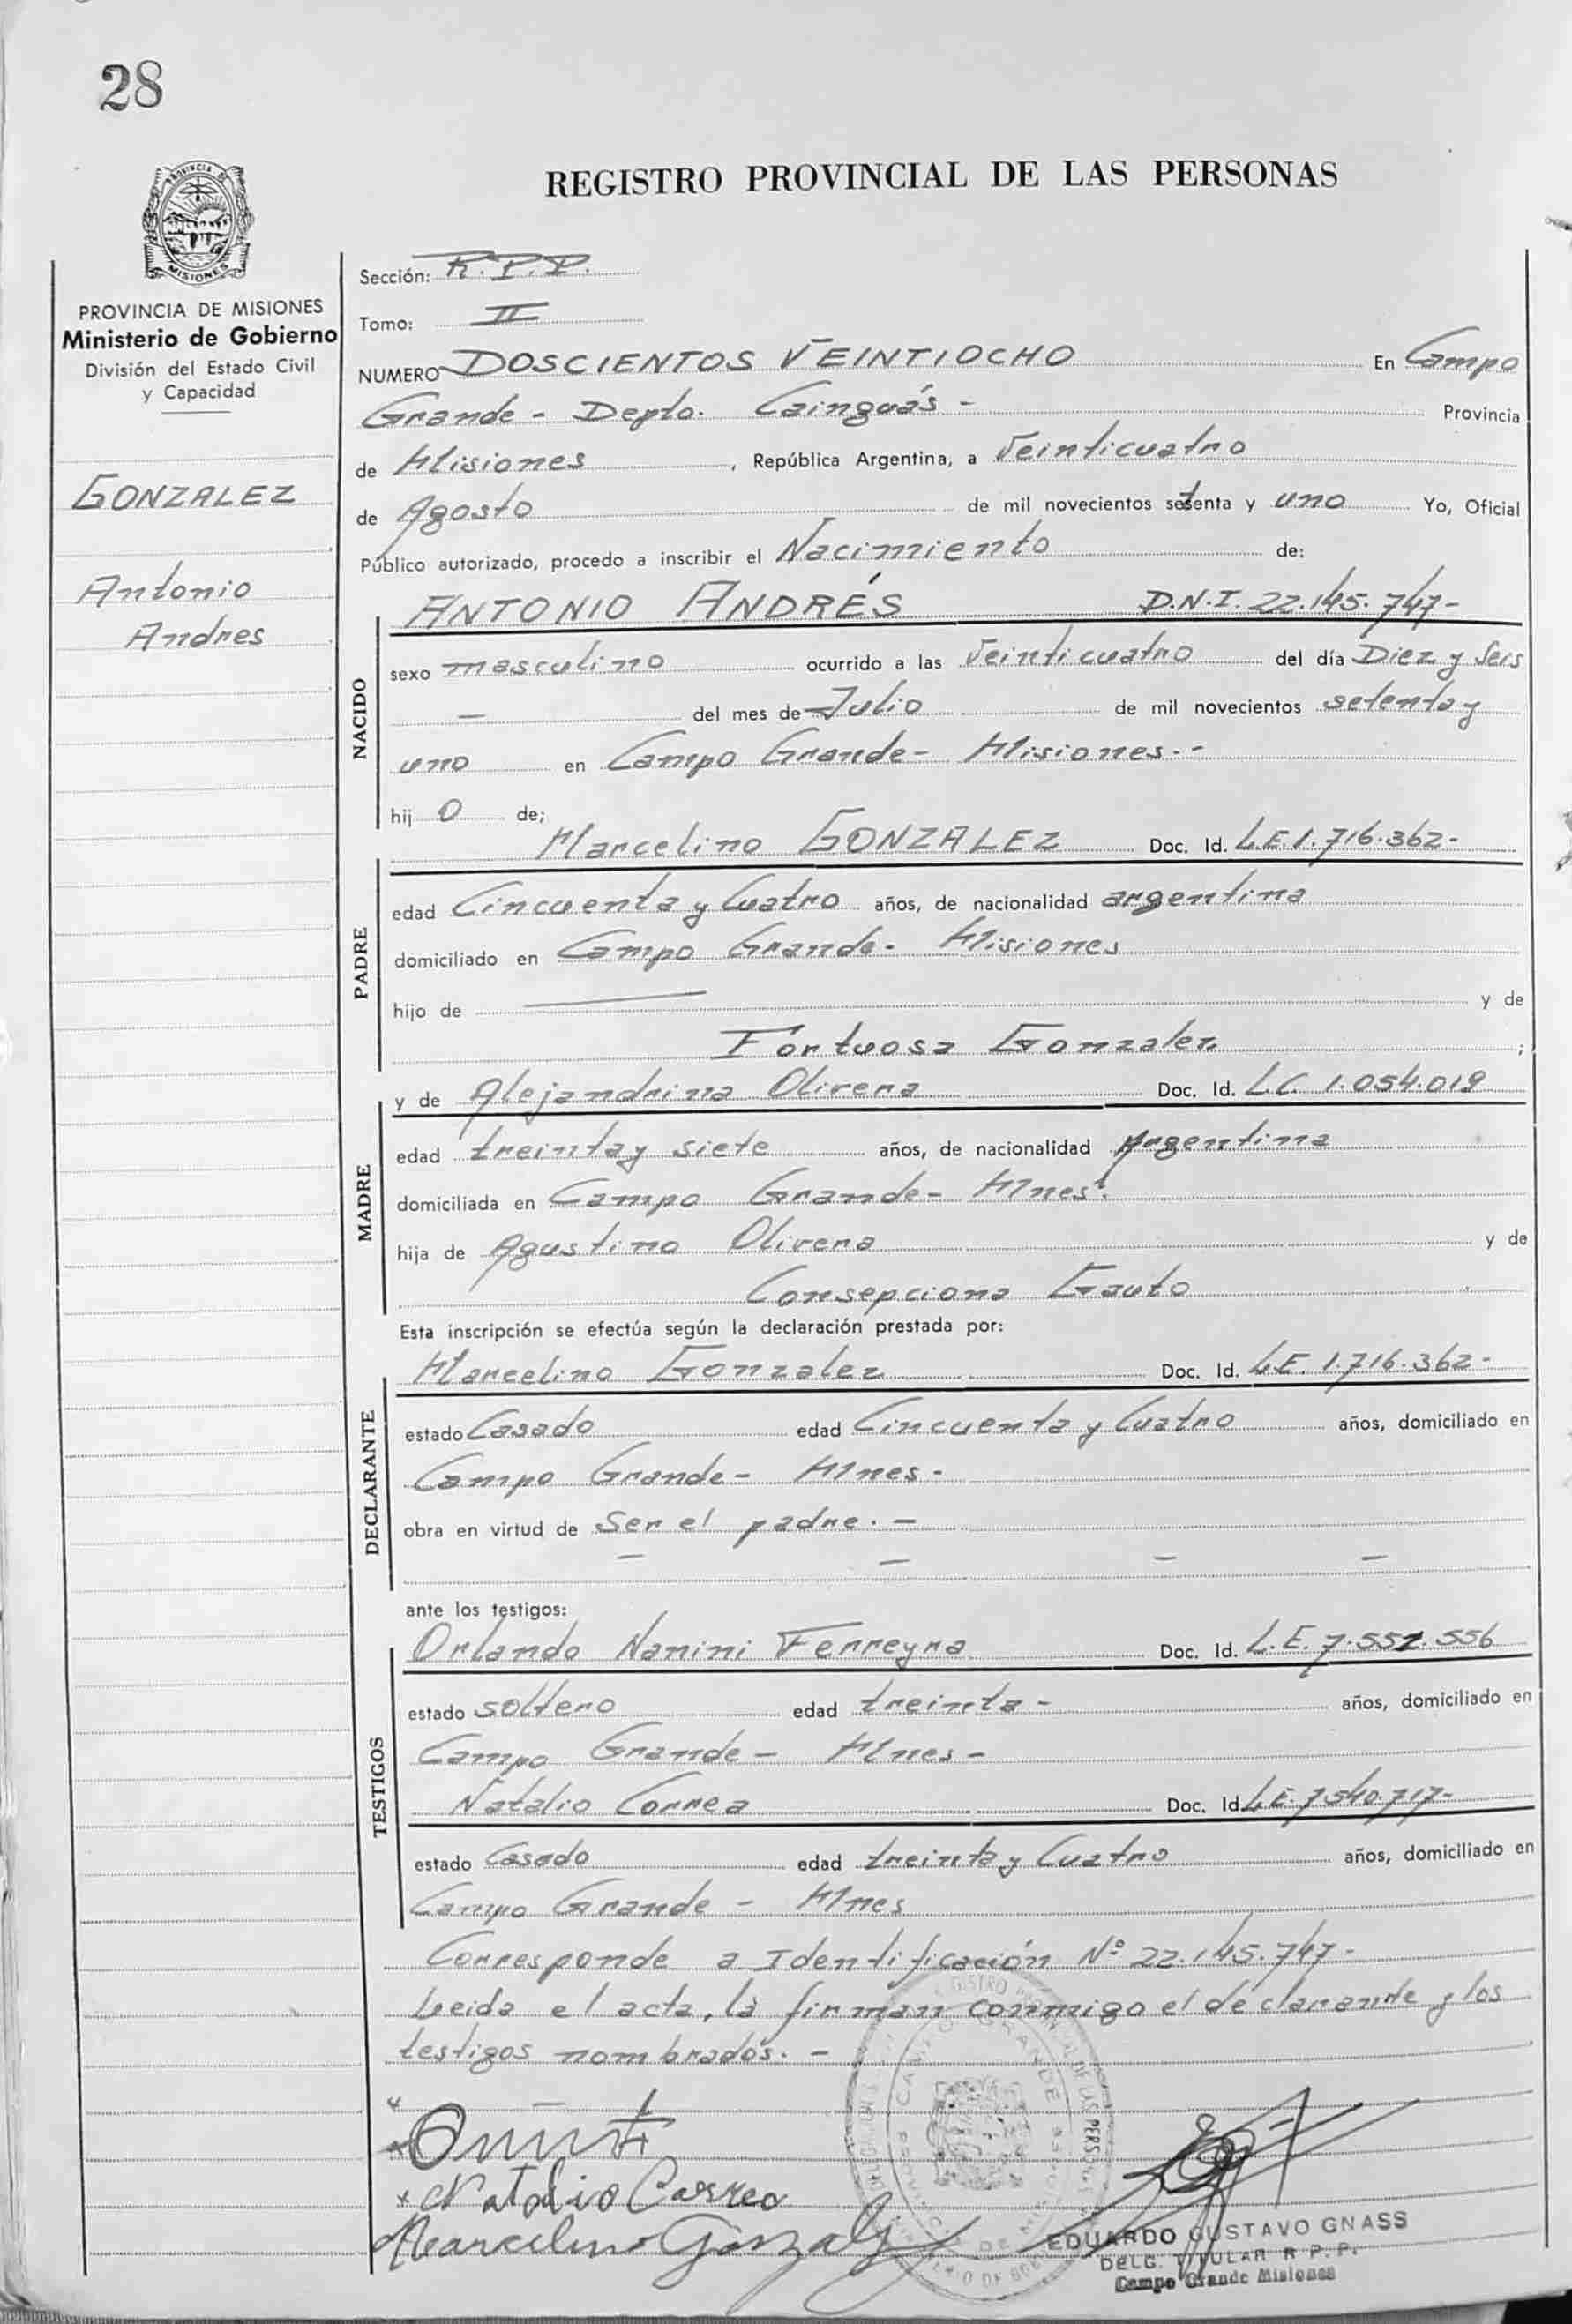 28
REGISTRO PROVINCIAL DE LAS PERSONAS
PROVINCIA DE MISIONES
Ministerio de Gobierno
División del Estado Civil
y Capacidad
GONZALEZ
Antonio
Andres
Sección: R.P.P.
Tomo: II
NUMERO DOSCIENTOS VEINTIOCHO En Campo
Grande - Depto. Cainguás - Provincia
de Misiones, República Argentina, a Veinticuatro
de Agosto de mil novecientos setenta y uno Yo, Oficial
Público autorizado, procedo a inscribir el Nacimiento de:
NACIDO
ANTONIO ANDRÉS D.N.I. 22.145.747-
sexo masculino ocurrido a las Veinticuatro del día Diez y Seis
— del mes de Julio de mil novecientos setenta y
uno en Campo Grande - Misiones.-
hijo de;
PADRE
Marcelino GONZALEZ Doc. Id. L.E. 1.716.362-
edad Cincuenta y Cuatro años, de nacionalidad argentina
domiciliado en Campo Grande - Misiones
hijo de — y de
Fortuosa Gonzalez ;
MADRE
y de Alejandrina Olivera Doc. Id. L.C. 1.054.019
edad treinta y siete años, de nacionalidad Argentina
domiciliada en Campo Grande - Mnes.
hija de Agustino Olivera y de
Consepciona Gauto
Esta inscripción se efectúa según la declaración prestada por:
DECLARANTE
Marcelino Gonzalez Doc. Id. L.E. 1.716.362-
estado Casado edad Cincuenta y Cuatro años, domiciliado en
Campo Grande - Mnes -
obra en virtud de Ser el padre. -
— — — —
ante los testigos:
TESTIGOS
Orlando Nanini Ferreyra Doc. Id. L.E. 7.552.556
estado soltero edad treinta - años, domiciliado en
Campo Grande - Mnes -
Natalio Correa Doc. Id. L.E. 7.540.717-
estado Casado edad treinta y Cuatro años, domiciliado en
Campo Grande - Mnes
Corresponde a Identificación Nº 22.145.747-
Leida el acta, la firman conmigo el declarante y los
testigos nombrados. -
Natalio Correa
Marcelino Gonzalez
EDUARDO GUSTAVO GNASS
DELG. TITULAR R.P.P.
Campo Grande Misiones